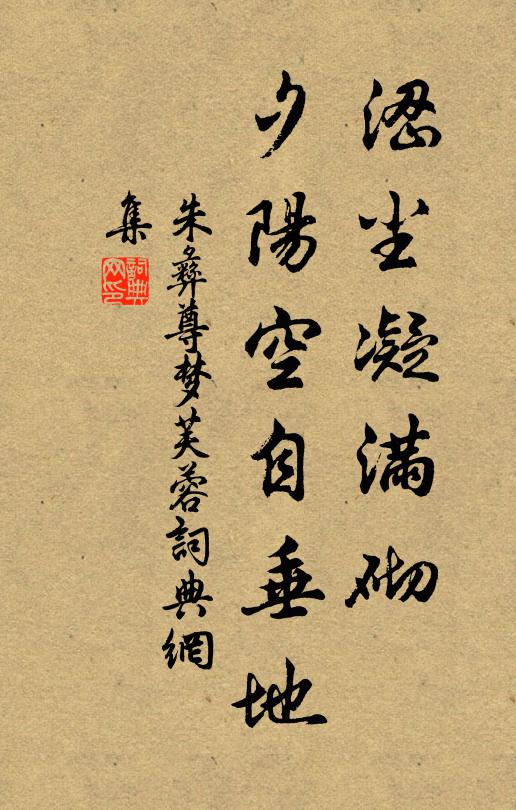 涩尘凝滿砌
夕陽空自垂地
朱彝尊梦芙蓉詞典網
集
詞典
网印